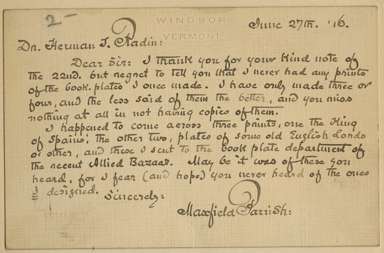 2-
WINDSOR
VERMONT
June 27th. '16.
Dr. Herman T. Radin:
Dear Sir: I thank you for your kind note of
the 22nd. but regret to tell you that I never had any prints
of the book-plates I once made. I have only made three or
four, and the less said of them the better, and you miss
nothing at all in not having copies of them.
I happened to come across three prints, one the King
of Spains, the other two, plates of some old English Lords
or other, and these I sent to the book plate department of
the recent Allied Bazaar. May be it was of these you
heard, for I fear (and hope) you never heard of the ones
I designed. Sincerely:
Maxfield Parrish: